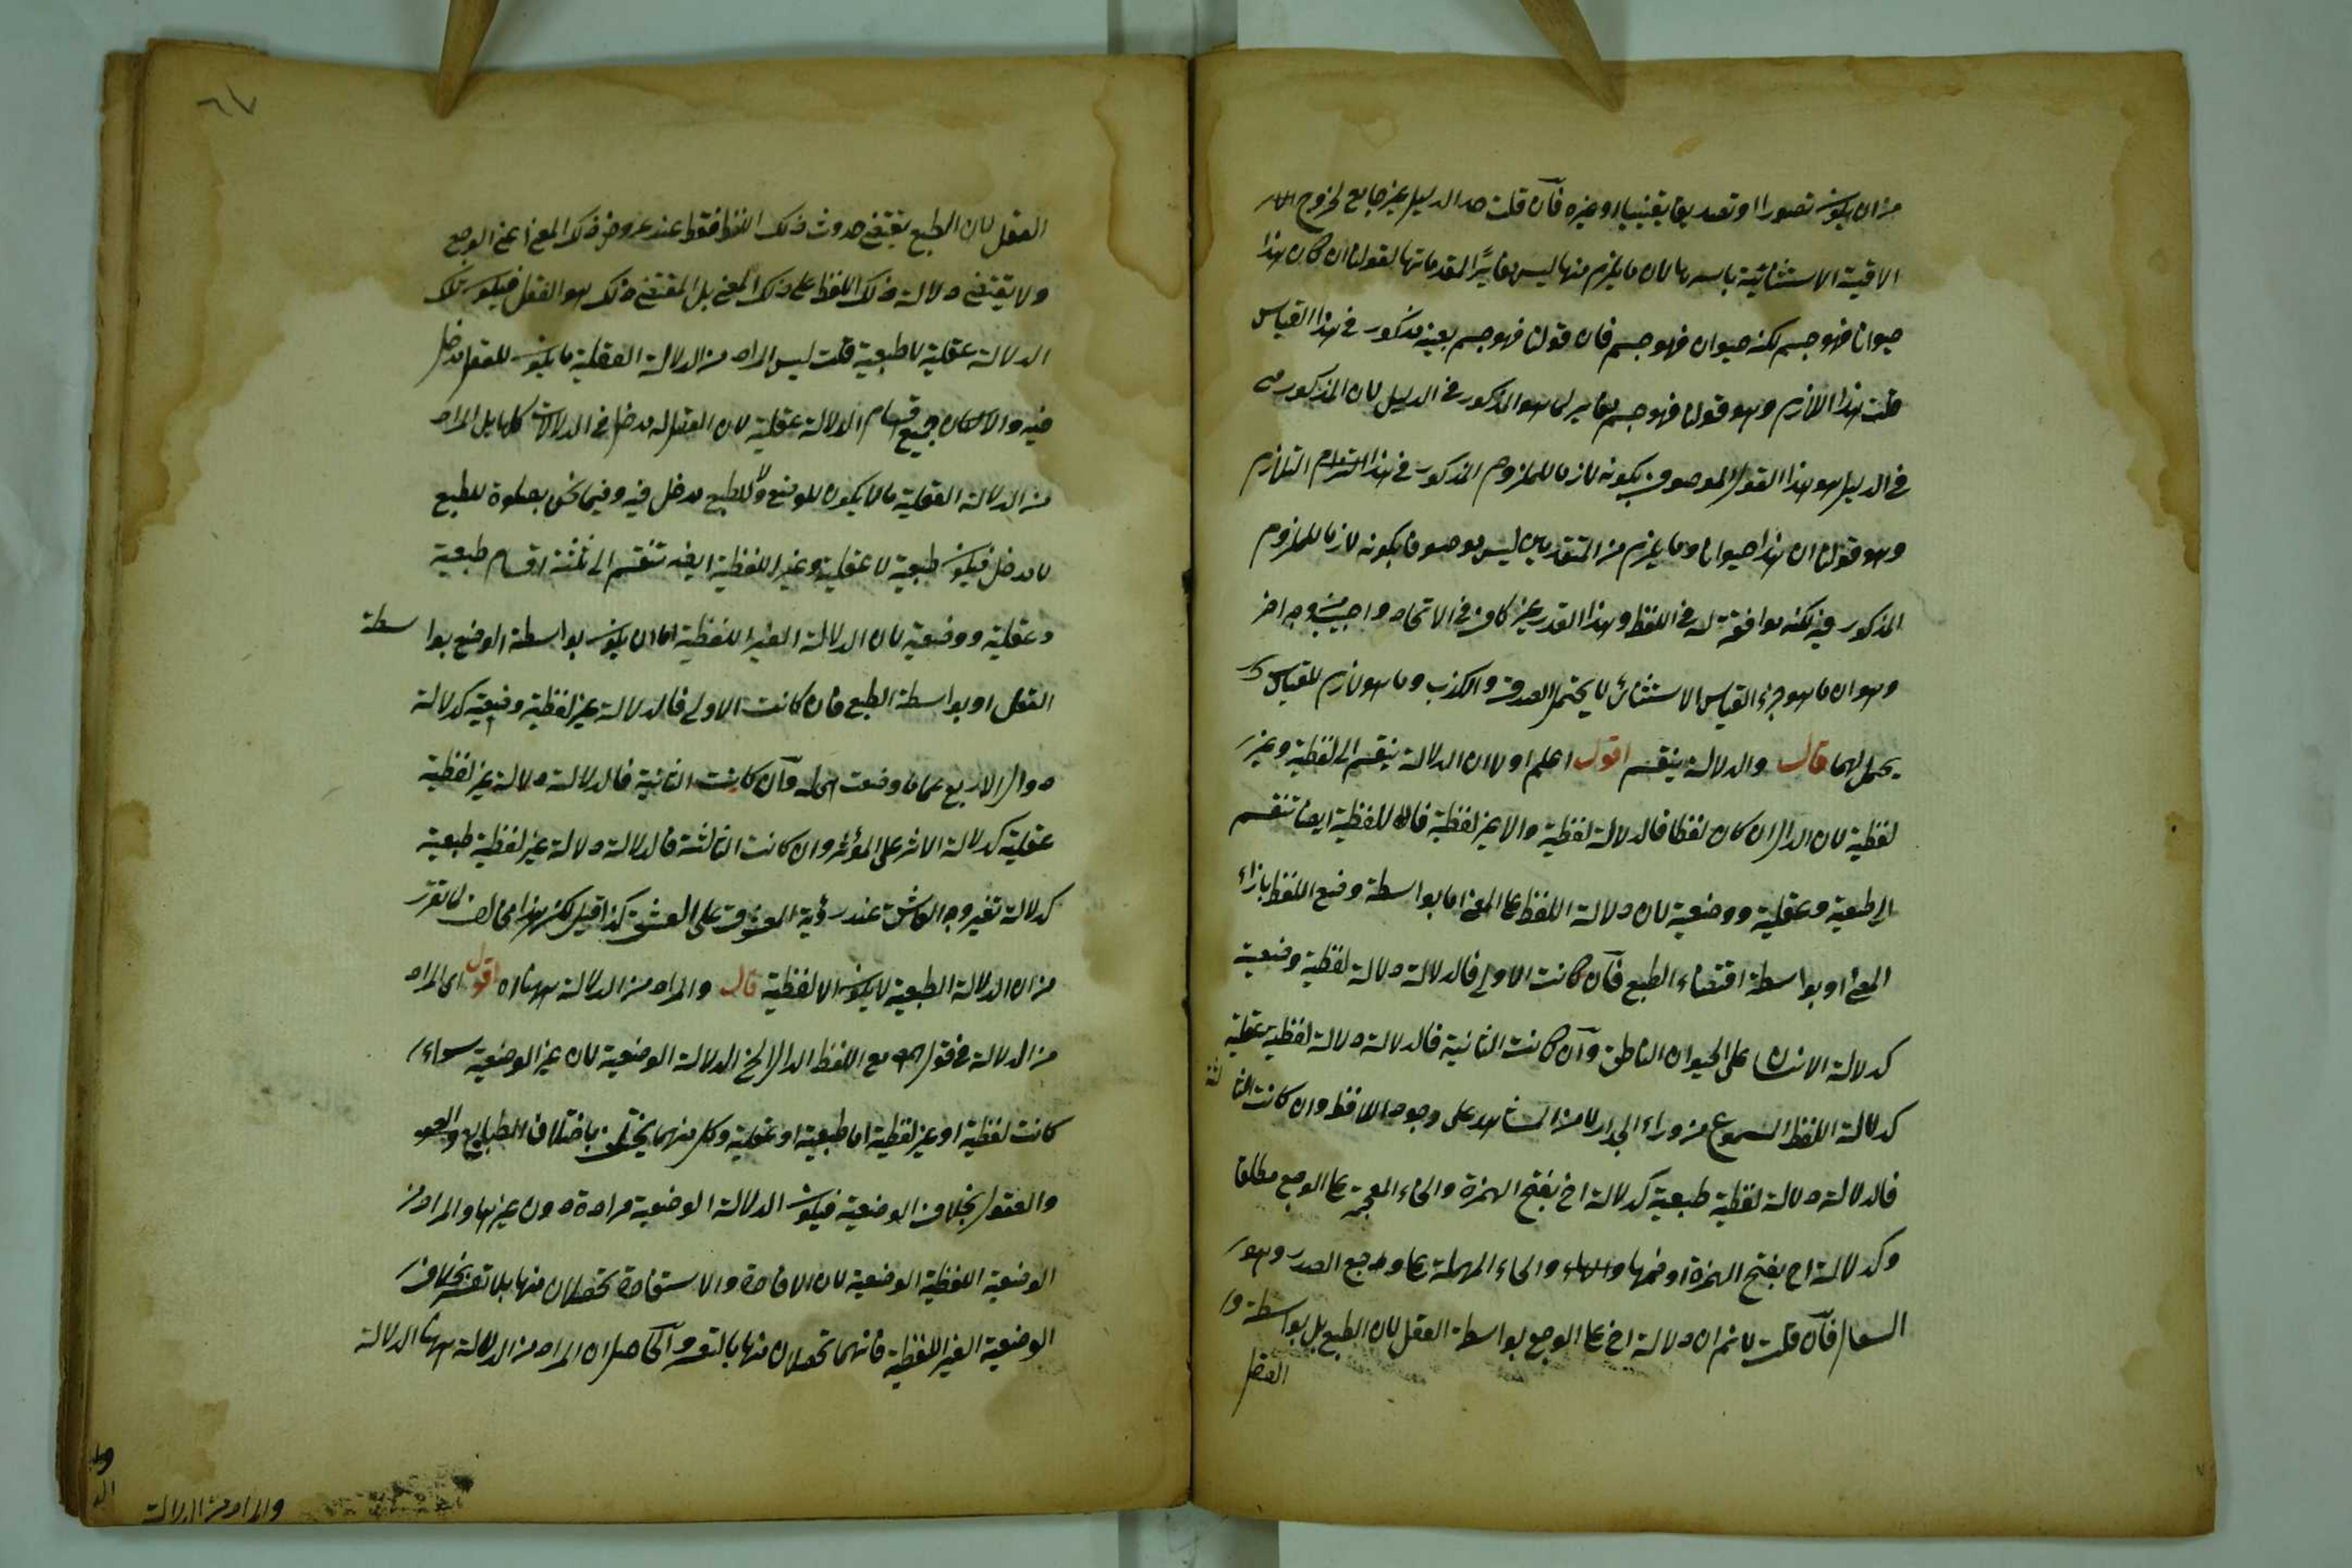 من ان يكون تصورا او تصديقا يقينيا او غيره فان قلت حد الدليل غير جامع لخروج
الاقيسة الاستثنائية باسرها لان ما يلزم منها ليس مغايرًا لمقدماتها كقولنا ان كان هذا
حيوانا فهو جسم لكنه حيوان فهو جسم فان قولنا فهو جسم بعينه مذكور في هذا القياس
قلت هذا اللازم وهو قولنا فهو جسم مغاير لما هو المذكور في الدليل لان المذكور
في الدليل هو هذا القول الموصوف بكونه لازما للملزوم المذكور في هذا التلازم
وهو قولنا ان هذا حيوانا وما يلزم من المتقدمين ليس موصوفا بكونه لازما للملزوم
المذكور فيه لكنه موافقة له في اللفظ وهذا القدر غير كاف في الاتحاد واجيب بوجه اخر
وهو ان ما هو جزء القياس الاستثنائي لا يحتمل الصدق والكذب وما هو لازم للقياس
يحتملهما قال والدلالة ينقسم اقول اعلم اولا ان الدلالة ينقسم الى لفظية وغير
لفظية لان الدال ان كان لفظا فالدلالة لفظية والا غير لفظية فاللفظية ايضا تنقسم
الى طبعية وعقلية ووضعية لان دلالة اللفظ على المعنى اما بواسطة وضع اللفظ بازاء
المعنى او بواسطة اقتضاء الطبع فان كانت الاولى فالدلالة دلالة لفظية وضعية
كدلالة الانسان على الحيوان الناطق وان كانت الثانية فالدلالة دلالة لفظية عقلية
كدلالة اللفظ المسموع من وراء الجدار لا من المشاهد على وجود اللافظ وان كانت الثالثة
فالدلالة دلالة لفظية طبعية كدلالة اخ بفتح الهمزة والخاء المعجمة على الوجع مطلقا
وكدلالة اح بفتح الهمزة او ضمها والحاء المهملة على وجع الصدر وهو
السعال فان قلت لا نم ان دلالة اخ على الوجع بواسطة العقل لان الطبع بل بواسطة
العقل
العقل لان الطبع يقتضي حدوث ذلك اللفظ فقط عند عروض ذلك المعنى اعني الوجع
ولا يقتضي دلالة ذلك اللفظ على ذلك المعنى بل المقتضي ذلك هو العقل فيكون تلك
الدلالة عقلية لا طبعية قلت ليس المراد من الدلالة العقلية ما يكون للعقل مدخل
فيه والا لكان جميع اقسام الدلالة عقلية لان العقل له مدخل في الدلالات كلها بل المراد
من الدلالة العقلية ما لا يكون للوضع ولا للطبع مدخل فيه وفيما نحن بصدده للطبع
لا مدخل فيكون طبعية لا عقلية وغير اللفظية ايضا تنقسم الى ثلثة اقسام طبعية
وعقلية ووضعية لان الدلالة الغير اللفظية اما ان يكون بواسطة الوضع بواسطة
العقل او بواسطة الطبع فان كانت الاولى فالدلالة غير لفظية وضعية كدلالة
دوال الاربع على ما وضعت له وان كانت الثانية فالدلالة دلالة غير لفظية
عقلية كدلالة الاثر على المؤثر وان كانت الثالثة فالدلالة دلالة غير لفظية طبعية
كدلالة تغير وجه العاشق عند رؤية المعشوق على العشق كذا قيل لكن هذا مخالف لما تقرر
من ان الدلالة الطبعية لا يكون الا لفظية قال والمراد من الدلالة ههنا اقول اي المراد
من الدلالة في قول المصـ مع اللفظ الدال الخ الدلالة الوضعية لان غير الوضعية سواء
كانت لفظية او غير لفظية اما طبعية او عقلية وكل منهما يختلف باختلاف الطبايع
والعقول بخلاف الوضعية فيكون الدلالة الوضعية مرادة دون غيرها والمراد من
الوضعية اللفظية الوضعية لان الافادة والاستفادة تحصلان منها بلا تعسر بخلاف
الوضعية الغير اللفظية فانهما تحصلان منها بالتعسر والحاصل ان المراد من الدلالة ههنا الدلالة
والمراد من الدلالة